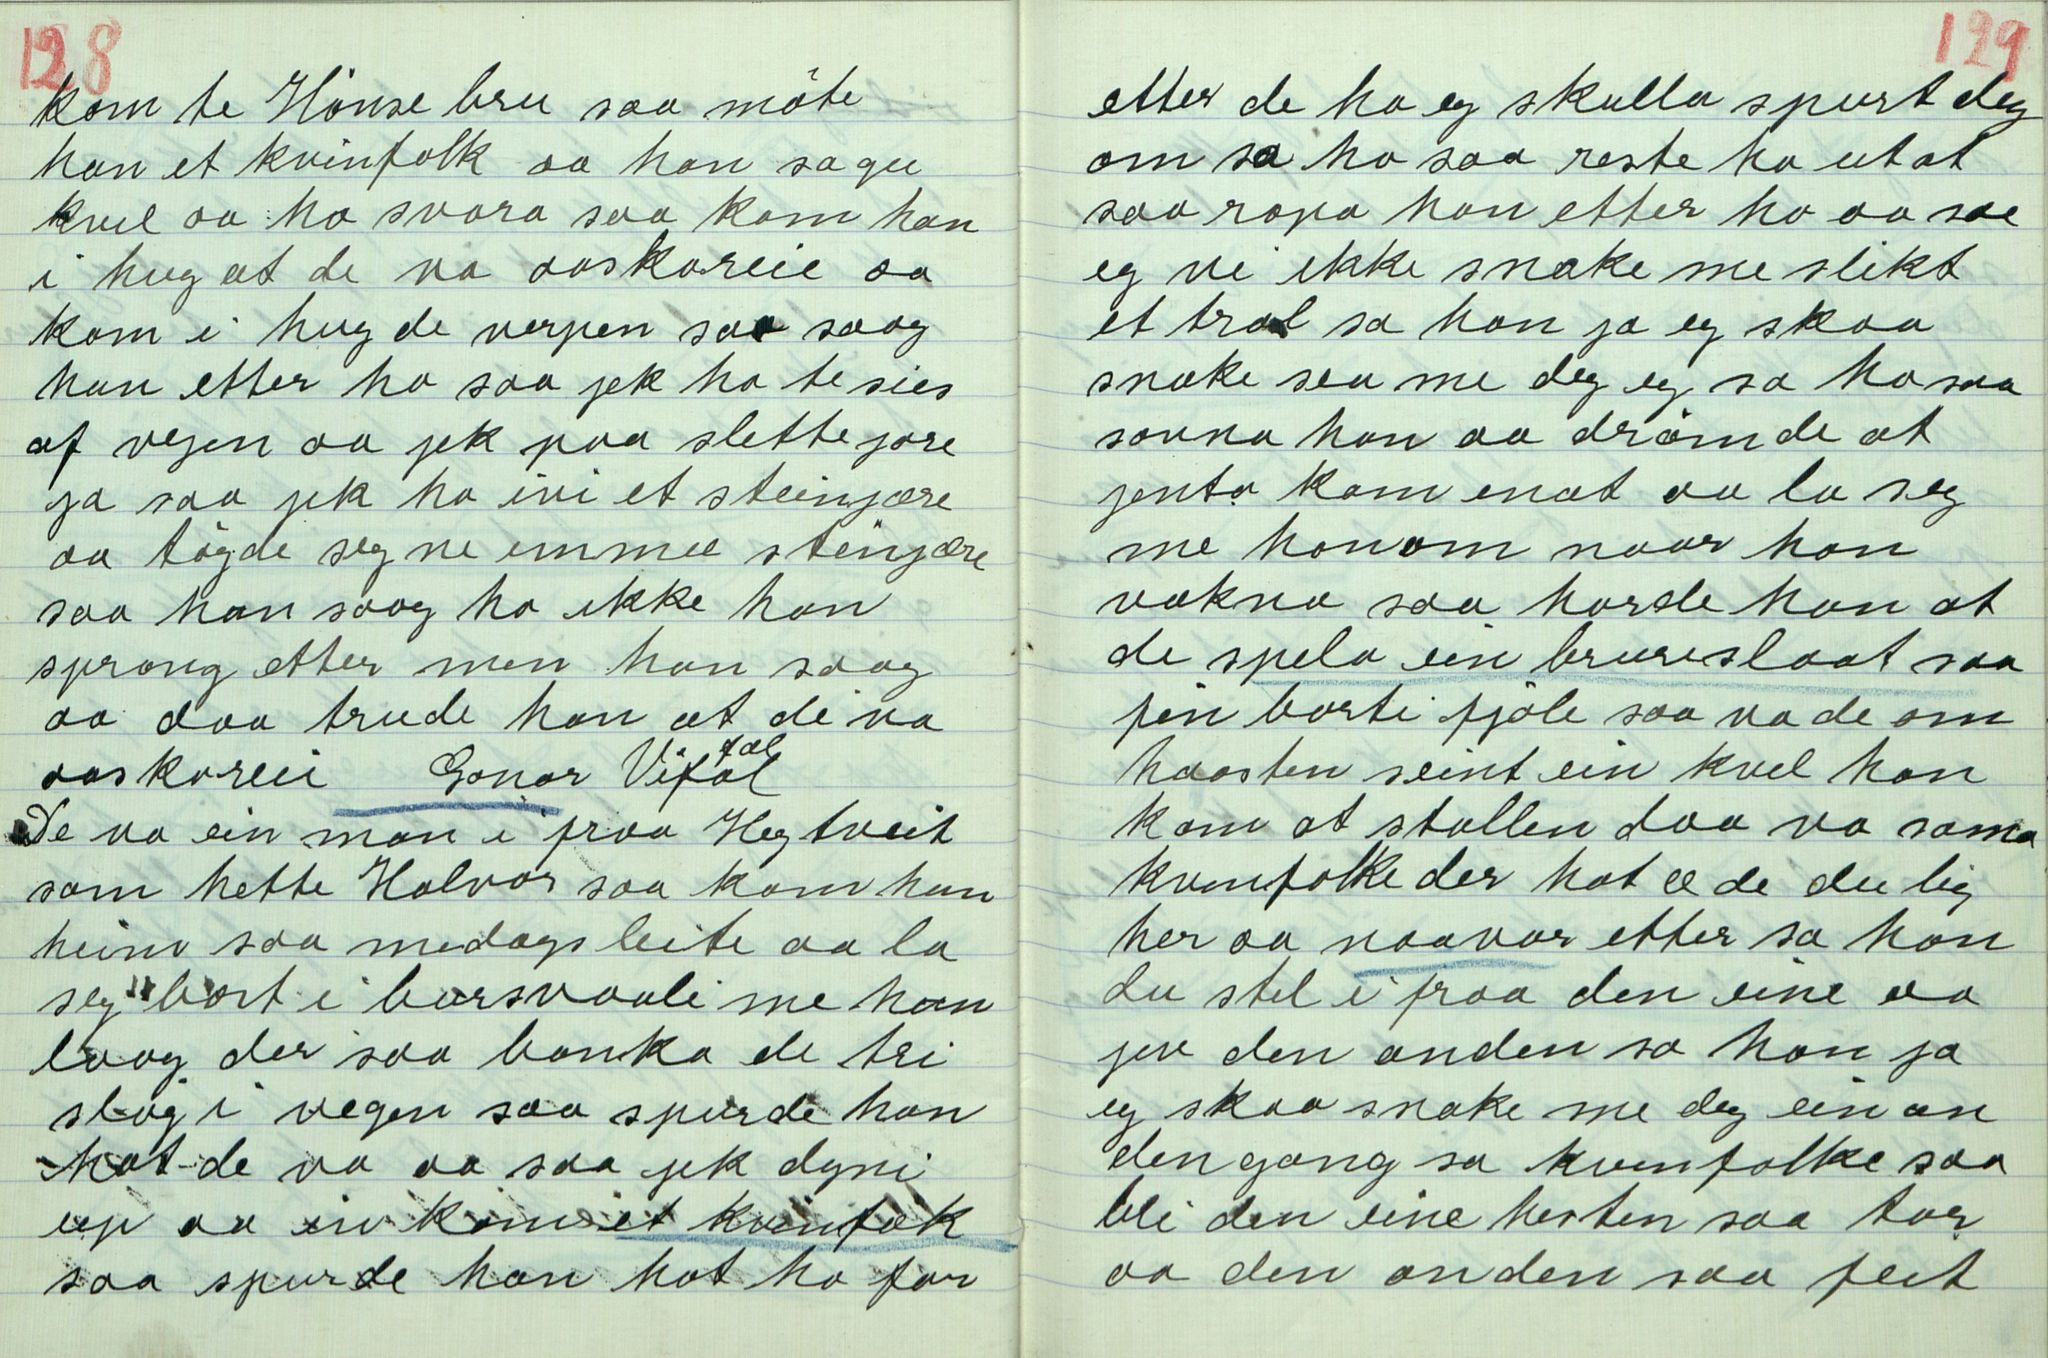 128
kom te Hönse bru saa möte
han et kvinfolk aa han sa gu
kvel aa ho svara saa kom han
i hug at de va aaskoreie aa
kom i hug de verpen saa saag
han etter ho saa jek ho te sies
af vegen aa jek paa slette jore
ja saa jek ho ivi et steinjære
aa tögde seg ne immee steinjære
saa han saag ho ikke han
sprang etter men han saag
aa daa trude han at de va
aaskoreii Gonar Viföl
De va ein man i fraa Hegtveit
som hette Halvor saa kom han
heim saa medagsleite aa la
seg bort i bursvaali me han
laag der saa banka de tri
slög i vegen saa spurde han
hot de va aa saa jek dyni
up aa in kom et kvinfolk
saa spurde han hot ho for
129
etter de ha eg skulla spurt deg
om sa ho saa reste ho ut at
saa ropa han etter ho aa sae
eg vi ikke snake me slikt
et trol sa han ja eg skaa
snake saa me deg eg sa ho saa
sovna han aa drömde at
jenta kom inat aa la seg
me honom naar han
vakna saa horde han at
de spela ein brureslaat saa
fin borti fjöle saa va de om
haasten seint ein kvel han
kom at stallen daa va sama
kvinfolke der hot æ de du lig
her aa naavar etter sa han
du stel i fraa den eine aa
jev den anden sa han ja
eg skaa snake me deg ein an
den gang sa kvinfolke saa
blei den eine hesten saa tor
aa den anden saa feit